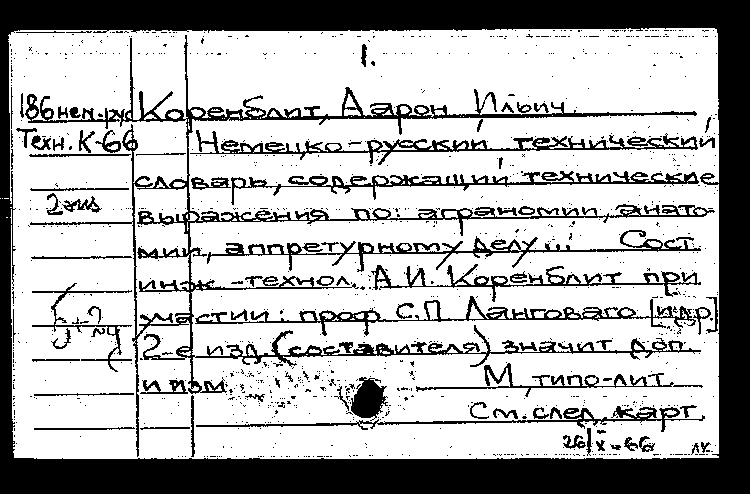 1.
186 нем-рус Коренблит, Аарон Ильич
Техн. К-66 Немецко-русский технический
словарь, содержащий технические
2 экз выражения по: аграномии, анато-
мии, аппретурному делу... Сост.
инж.-технол. А.И. Коренблит при
участии: проф. С.П. Ланговаго [и др]
2-е изд. (составителя) значит. доп.
и изм. М., типо-лит.
См. след. карт.
26/X-66